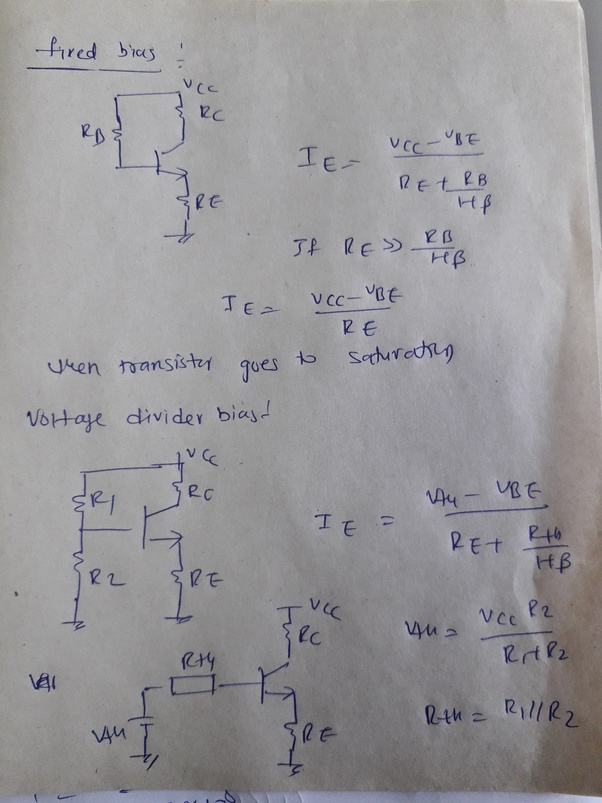 fixed bias :
VCC
RC
RB
RE
IE = VCC - VBE / RE + RB / 1+β
If RE >> RB / 1+β
IE = VCC - VBE / RE
then transistor goes to saturation
Voltage divider bias :
VCC
R1
RC
R2
RE
IE = Vth - VBE / RE + Rth / 1+β
VCC
RC
Rth
Vth
RE
Vth = VCC R2 / R1 + R2
Rth = R1 // R2